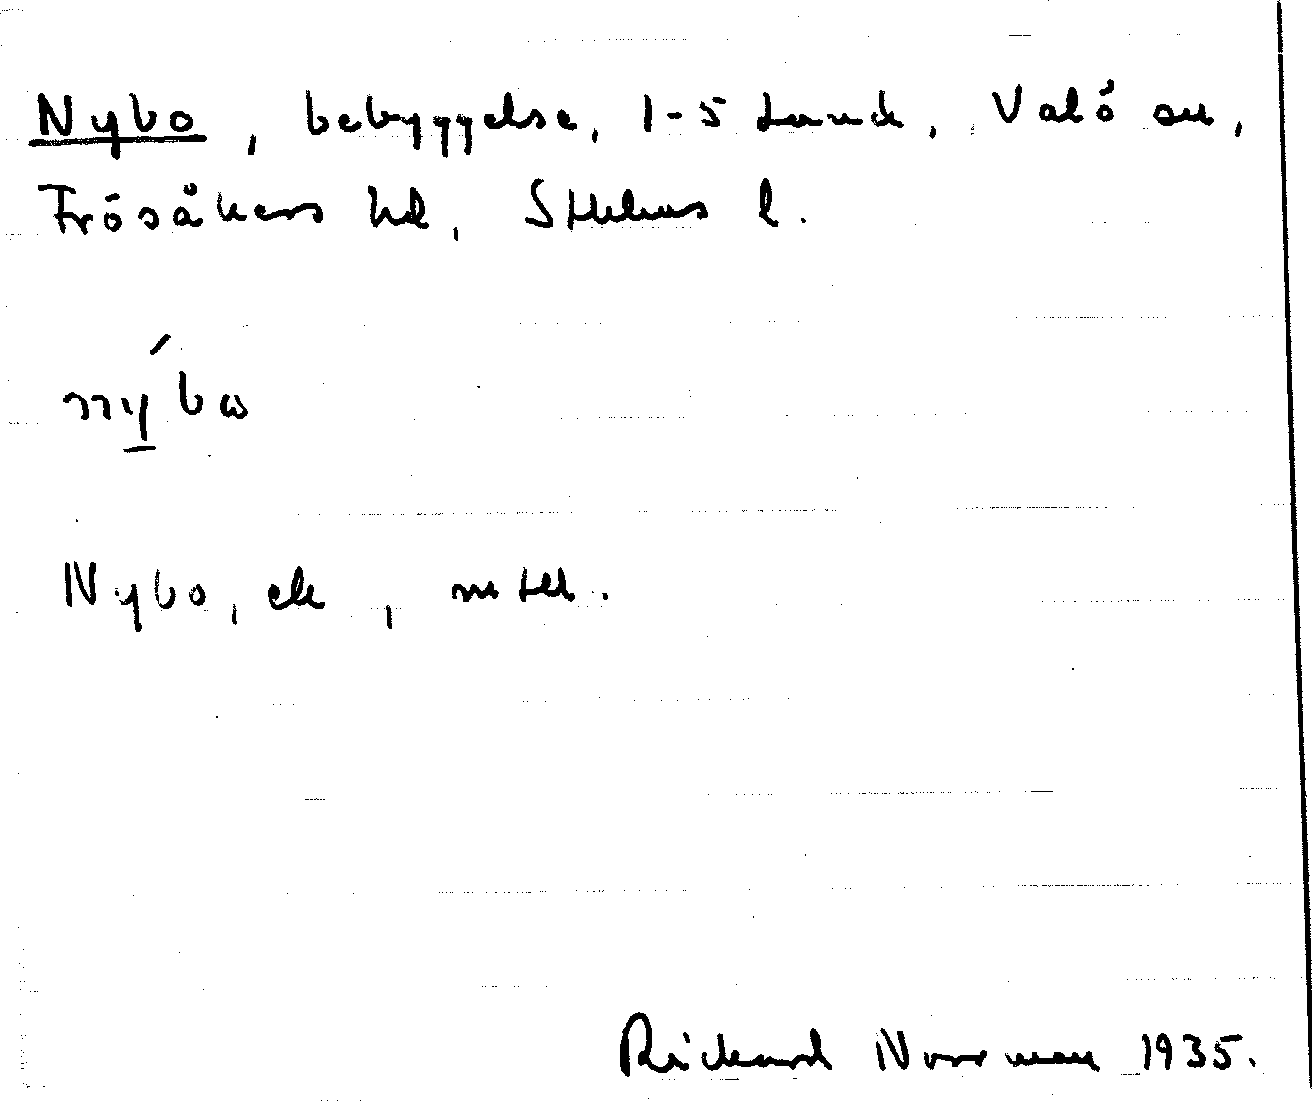 Nybo, bebyggelse, 1-5 Lund, Valö sn,
Frösåkers hd, Sthlms l.
nýbω
Nybo, ek,
Rickard Norrman 1935.